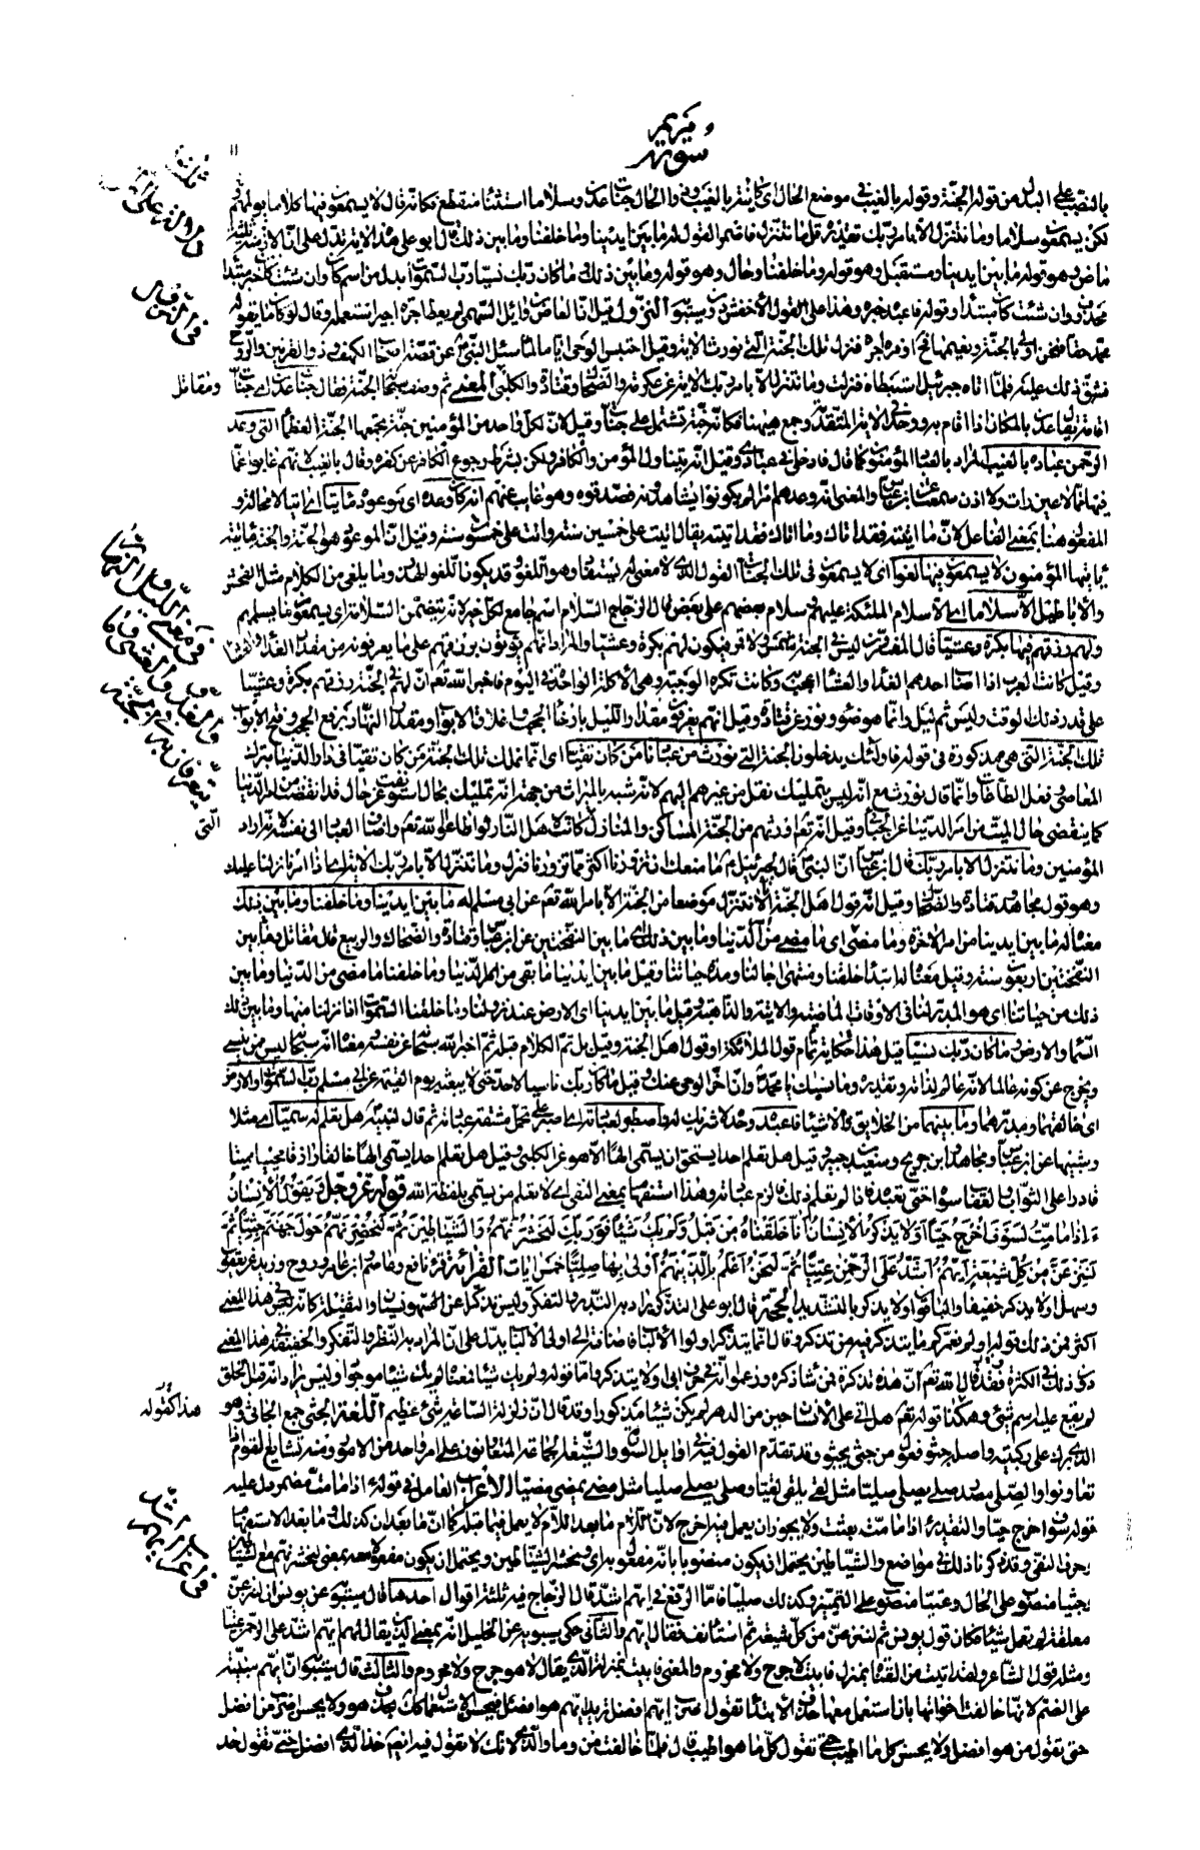 سورة مريم
بالنصب على البدل من قوله الجنة وقوله بالغيب في موضع الحال اي كاينة بالغيب وفي والحال جنات عدن وسلاما استثناء منقطع فكانه قال لا يسمعون فيها كلاما يولمهم
لكن يسمعون سلاما وما نتنزل الا بامر ربك تقديره قل ما نتنزل فاضمر القول له ما بين ايدينا وما خلفنا وما بين ذلك قال ابو علي هذا الاية تدل على ان الازمنة ثلثة
ماض وهو قوله ما بين ايدينا ومستقبل وهو قوله وما خلفنا وحال وهو قوله وما بين ذلك وما كان ربك نسيا رب السموات بدل من اسم كان وان شئت كان خبر مبتدا
محذوف وان شئت كان مبتدا وقوله فاعبده خبره وهذا على القول الاخفش دون سيبويه النزول قيل ان العاص بن وايل السهمي لم يعط اجرة اجير استعمله وقال لو كان ما يقوله
محمد حقا فنحن اولى بالجنة ونعيمها فحينئذ اوفره اجره فنزل تلك الجنة التي نورث الاية وقيل احتبس الوحي اياما لما سئل النبي عن قصة اصحاب الكهف وذو القرنين والروح
فشق ذلك عليه فلما اتاه جبرئيل استبطأه فنزلت وما نتنزل الا بامر ربك الاية عن عكرمة والضحاك وقتادة والكلبي ومقاتل المعنى ثم وصف سبحانه الجنة فقال جنات عدن اي جنات
اقامة يقال عدن بالمكان اذا اقام به ووحد في الاية المتقدمة وجمع هيهنا فكانه جنة تشتمل على جنات وقيل لان لكل واحد من المؤمنين جنة يجمعها الجنة العظمى التي وعد
الرحمن عباده بالغيب المراد بالعباد المؤمنون كما قال فادخلي في عبادي وقيل انه يتناول المؤمن والكافر ولكن بشرط رجوع الكافر عن كفره وقال بالغيب لانهم غابوا عما
فيها مما لا عين رات ولا اذن سمعت عن ابن عباس والمعنى انه وعدهم امرا لم يكونوا يشاهدونه فصدقوه وهو غايب عنهم انه كان وعده اي موعوده مأتيا اي اتيا لا محالة و
المفعول هنا بمعنى الفاعل لان ما اتيته فقد اتاك وما اتاك فقد اتيته يقال اتيت على خمسين سنة واتت على خمسون سنة وقيل ان الموعود هو الجنة والجنة مأتية
يأتيها المؤمنون لا يسمعون فيها لغوا اي لا يسمعون في تلك الجنات القول الذي لا معنى له يستفاد وهو اللغو وقد يكون اللغو الهذر وما يلغى من الكلام مثل الفحش
والاباطيل الا سلاما اي الا سلام الملئكة عليهم وسلام بعضهم على بعض قال الزجاج السلام اسم جامع لكل خير لانه يتضمن السلامة اي يسمعون ما يسلمهم
ولهم رزقهم فيها بكرة وعشيا قال المفسرون ليس في الجنة شمس ولا قمر فيكون لهم بكرة وعشيا والمراد انهم يؤتون برزقهم على ما يعرفونه من مقدار الغداء والعشاء
وقيل كانت العرب اذا اصاب احدهم الغداء والعشاء اعجب به وكانت تكره الوجبة وهي الاكلة الواحدة في اليوم فاخبر الله تعم ان لهم في الجنة رزقهم بكرة وعشيا
على قدر ذلك الوقت وليس ثم ليل وانما هو ضوء ونور عن قتادة وقيل انهم يعرفون مقدار الليل بارخاء الحجب واغلاق الابواب ومقدار النهار برفع الحجب وفتح الابواب
تلك الجنة التي هي مذكورة في قوله فاولئك يدخلون الجنة التي نورث من عبادنا من كان تقيا اي انما نملك تلك الجنة من كان تقيا في دار الدنيا بترك
المعاصي وفعل الطاعات وانما قال نورث مع انه ليس بتمليك نقل من غيرهم اليهم لانه شبه بالميراث من جهة انه تمليك بحال استونفت عن حال قد انقضت من امر الدنيا
كما ينقضي حال الميت من امر الدنيا عن الجبائي وقيل انه تعم اورثهم من الجنة المساكن والمنازل التي كانت لاهل النار لو اطاعوا الله تعم واضاف العباد الى نفسه لانه اراد
المؤمنين وما نتنزل الا بامر ربك قال ابن عباس ان النبي قال لجبرئيل ما منعك ان تزورنا اكثر مما تزورنا فنزل وما نتنزل الا بامر ربك الاية اي اذا امرنا نزلنا عليك
وهو قول مجاهد وقتادة والضحاك وقيل انه قول اهل الجنة انا لا نتنزل موضعا من الجنة الا بامر الله تعم عن ابي مسلم له ما بين ايدينا وما خلفنا وما بين ذلك
معناه له ما بين ايدينا من امر الاخرة وما خلفنا اي ما مضى من امر الدنيا وما بين ذلك اي ما بين النفختين عن ابن عباس وقتادة والضحاك والربيع قال مقاتل وما بين
النفختين اربعون سنة وقيل معناه له ابتداء خلقنا ومنتهى اجالنا ومدة حياتنا وقيل ما بين ايدينا ما بقي من امر الدنيا وما خلفنا ما مضى من الدنيا وما بين
ذلك من حياتنا اي هو المدبر لنا في الاوقات الماضية والاتية والذاهبة وقيل ما بين ايدينا اي الارض عند نزولنا وما خلفنا السموات اذا نزلنا منها وما بين ذلك
السماء والارض وما كان ربك نسيا قيل هذا حكاية تمام قول الملائكة او قول اهل الجنة وقيل بل تم الكلام قبله ثم اخبر الله سبحانه عن نفسه ومعناه انه سبحانه ليس ممن ينسى
ويخرج عن كونه عالما لانه عالم لذاته وتقديره وما نسيك يا محمد وان اخر الوحي عنك وقيل ما كان ربك ناسيا لاحد حتى لا يبعثه يوم القيمة عن ابي مسلم رب السموات والارض
اي خالقهما ومدبرهما وما بينهما من الخلايق والاشياء فاعبده وحده لا شريك له واصطبر لعبادته اي اصبر على تحمل مشقة عبادته ثم قال لنبيه هل تعلم له سميا اي مثلا
وشبيها عن ابن عباس ومجاهد وابن جريج وسعيد بن جبير وقيل هل تعلم احدا يستحق ان يسمى الها الا هو عن الكلبي وقيل هل تعلم احدا يسمى الله خالقا رازقا محييا مميتا
قادرا على الثواب والعقاب سواه حتى تعبده فاذا لم تعلم ذلك فالزم عبادته وهذا استفهام بمعنى النفي اي لا تعلم من يسمى بلفظة الله قوله عز وجل ويقول الانسان
ءاذا ما مت لسوف اخرج حيا اولا يذكر الانسان انا خلقناه من قبل ولم يك شيئا فوربك لنحشرنهم والشياطين ثم لنحضرنهم حول جهنم جثيا ثم
لننزعن من كل شيعة ايهم اشد على الرحمن عتيا ثم لنحن اعلم بالذين هم اولى بها صليا خمس ايات القرائة قرء نافع وعاصم وابن عامر وروح وزيد عن يعقوب
وسهل اولا يذكر خفيفا والباقون اولا يذكر بالتشديد الحجة قال ابو علي التذكر يراد به التدبر والتفكر وليس تذكرا عن نسيان والثقيلة كانه في هذا المعنى
اكثر فمن ذلك قوله اولم نعمركم ما يتذكر فيه من تذكر وقال انما يتذكر اولوا الالباب فاضافته الى اولي الالباب يدل على ان المراد به النظر والتفكر والخفيفة في هذا المعنى
دون ذلك في الكثرة فقد قال الله تعم ان هذه تذكرة فمن شاء ذكره وزعموا انه في حرف ابي اولا يتذكر واما قوله ولم يك شيئا فمعناه لم يك شيئا موجودا وليس يراد انه قبل الخلق
لم يقع عليه اسم شيء وهكذا قوله تعم هل اتى على الانسان حين من الدهر لم يكن شيئا مذكورا وقد قال ان زلزلة الساعة شيء عظيم اللغة الجثي جمع الجاثي وهو
الذي برك على ركبتيه واصله جثوو فعول من جثى يجثو وقد تقدم القول فيه في اوايل السورة والشيعة الجماعة المتعاونون على امر واحد من الامور ومنه تشايع القوم اذا
تعاونوا والصلي مصدر صلى يصلى صليا مثل لقي يلقى لقيا وصلى يصلي صليا مثل مضى يمضي مضيا الاعراب العامل في قوله ءاذا ما مت مضمر دل عليه
قوله سوف اخرج حيا والتقدير ءاذا ما مت بعثت ولا يجوز ان يعمل فيه اخرج لان ما بعد اللام لا يعمل فيما قبله كما ان ما بعد ان كذلك وما بعد الاستفهام
وحرف النفي وقد ذكرنا ذلك في مواضع والشياطين يحتمل ان يكون منصوبا بانه مفعول به اي ونحشر الشياطين ويحتمل ان يكون مفعولا معه بمعنى لنحشرنهم مع الشياطين
وجثيا منصوب على الحال وعتيا منصوب على التمييز وكذلك صليا فاما الرفع في ايهم اشد قال الزجاج فيه ثلثة اقوال احدها قال سيبويه عن يونس ان لننزعن
معلقة لم تعمل شيئا فكان قول يونس ثم لننزعن من كل شيعة ثم استأنف فقال ايهم والثاني حكى سيبويه عن الخليل انه بمعنى الذين يقال لهم ايهم اشد على الرحمن عتيا
ومثله قول الشاعر ولقد ابيت من الفتاة بمنزل فابيت لا حرج ولا محروم والمعنى فابيت بمنزلة الذي يقال لا هو حرج ولا محروم والثالث قال سيبويه ان ايهم مبنية
على الضم لانها خالفت اخواتها بان استعمل معها حذف الابتداء تقول اضرب ايهم افضل تريد ايهم هو افضل فيحسن الاستعمال كذلك بحذف هو ولا يحسن اضرب من افضل
حتى تقول من هو افضل ولا يحسن كل ما اطيب حتى تقول كل ما هو اطيب قال فلما خالفت من وما والذي لانك لا تقول فيه ايضا خذ الذي افضل حتى تقول خذ
هذا كقوله